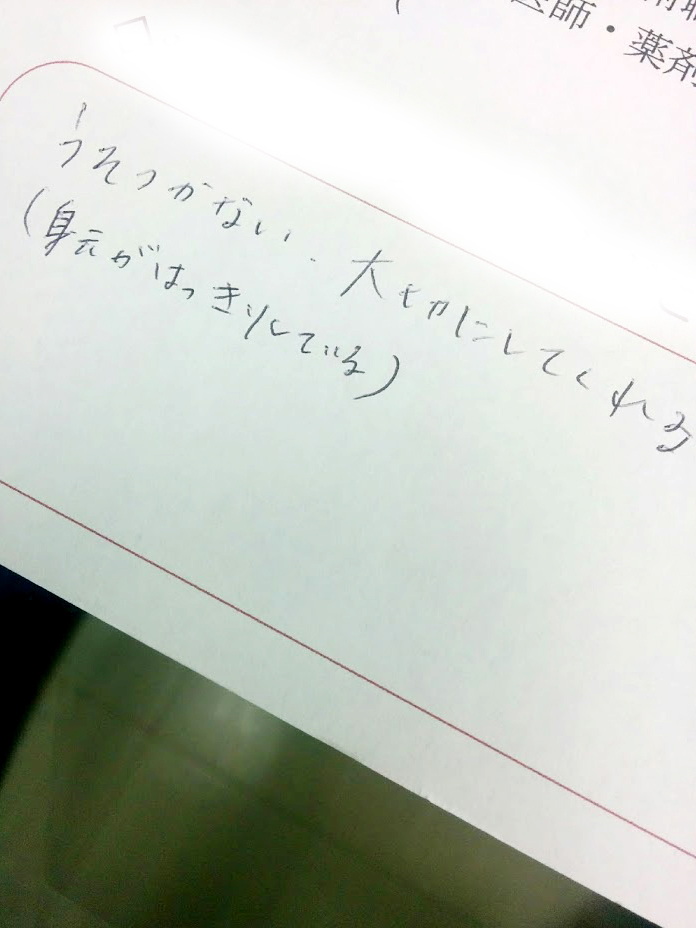 医師・薬剤
うそつかない、大切にしてくれる
(身元がはっきりしている)